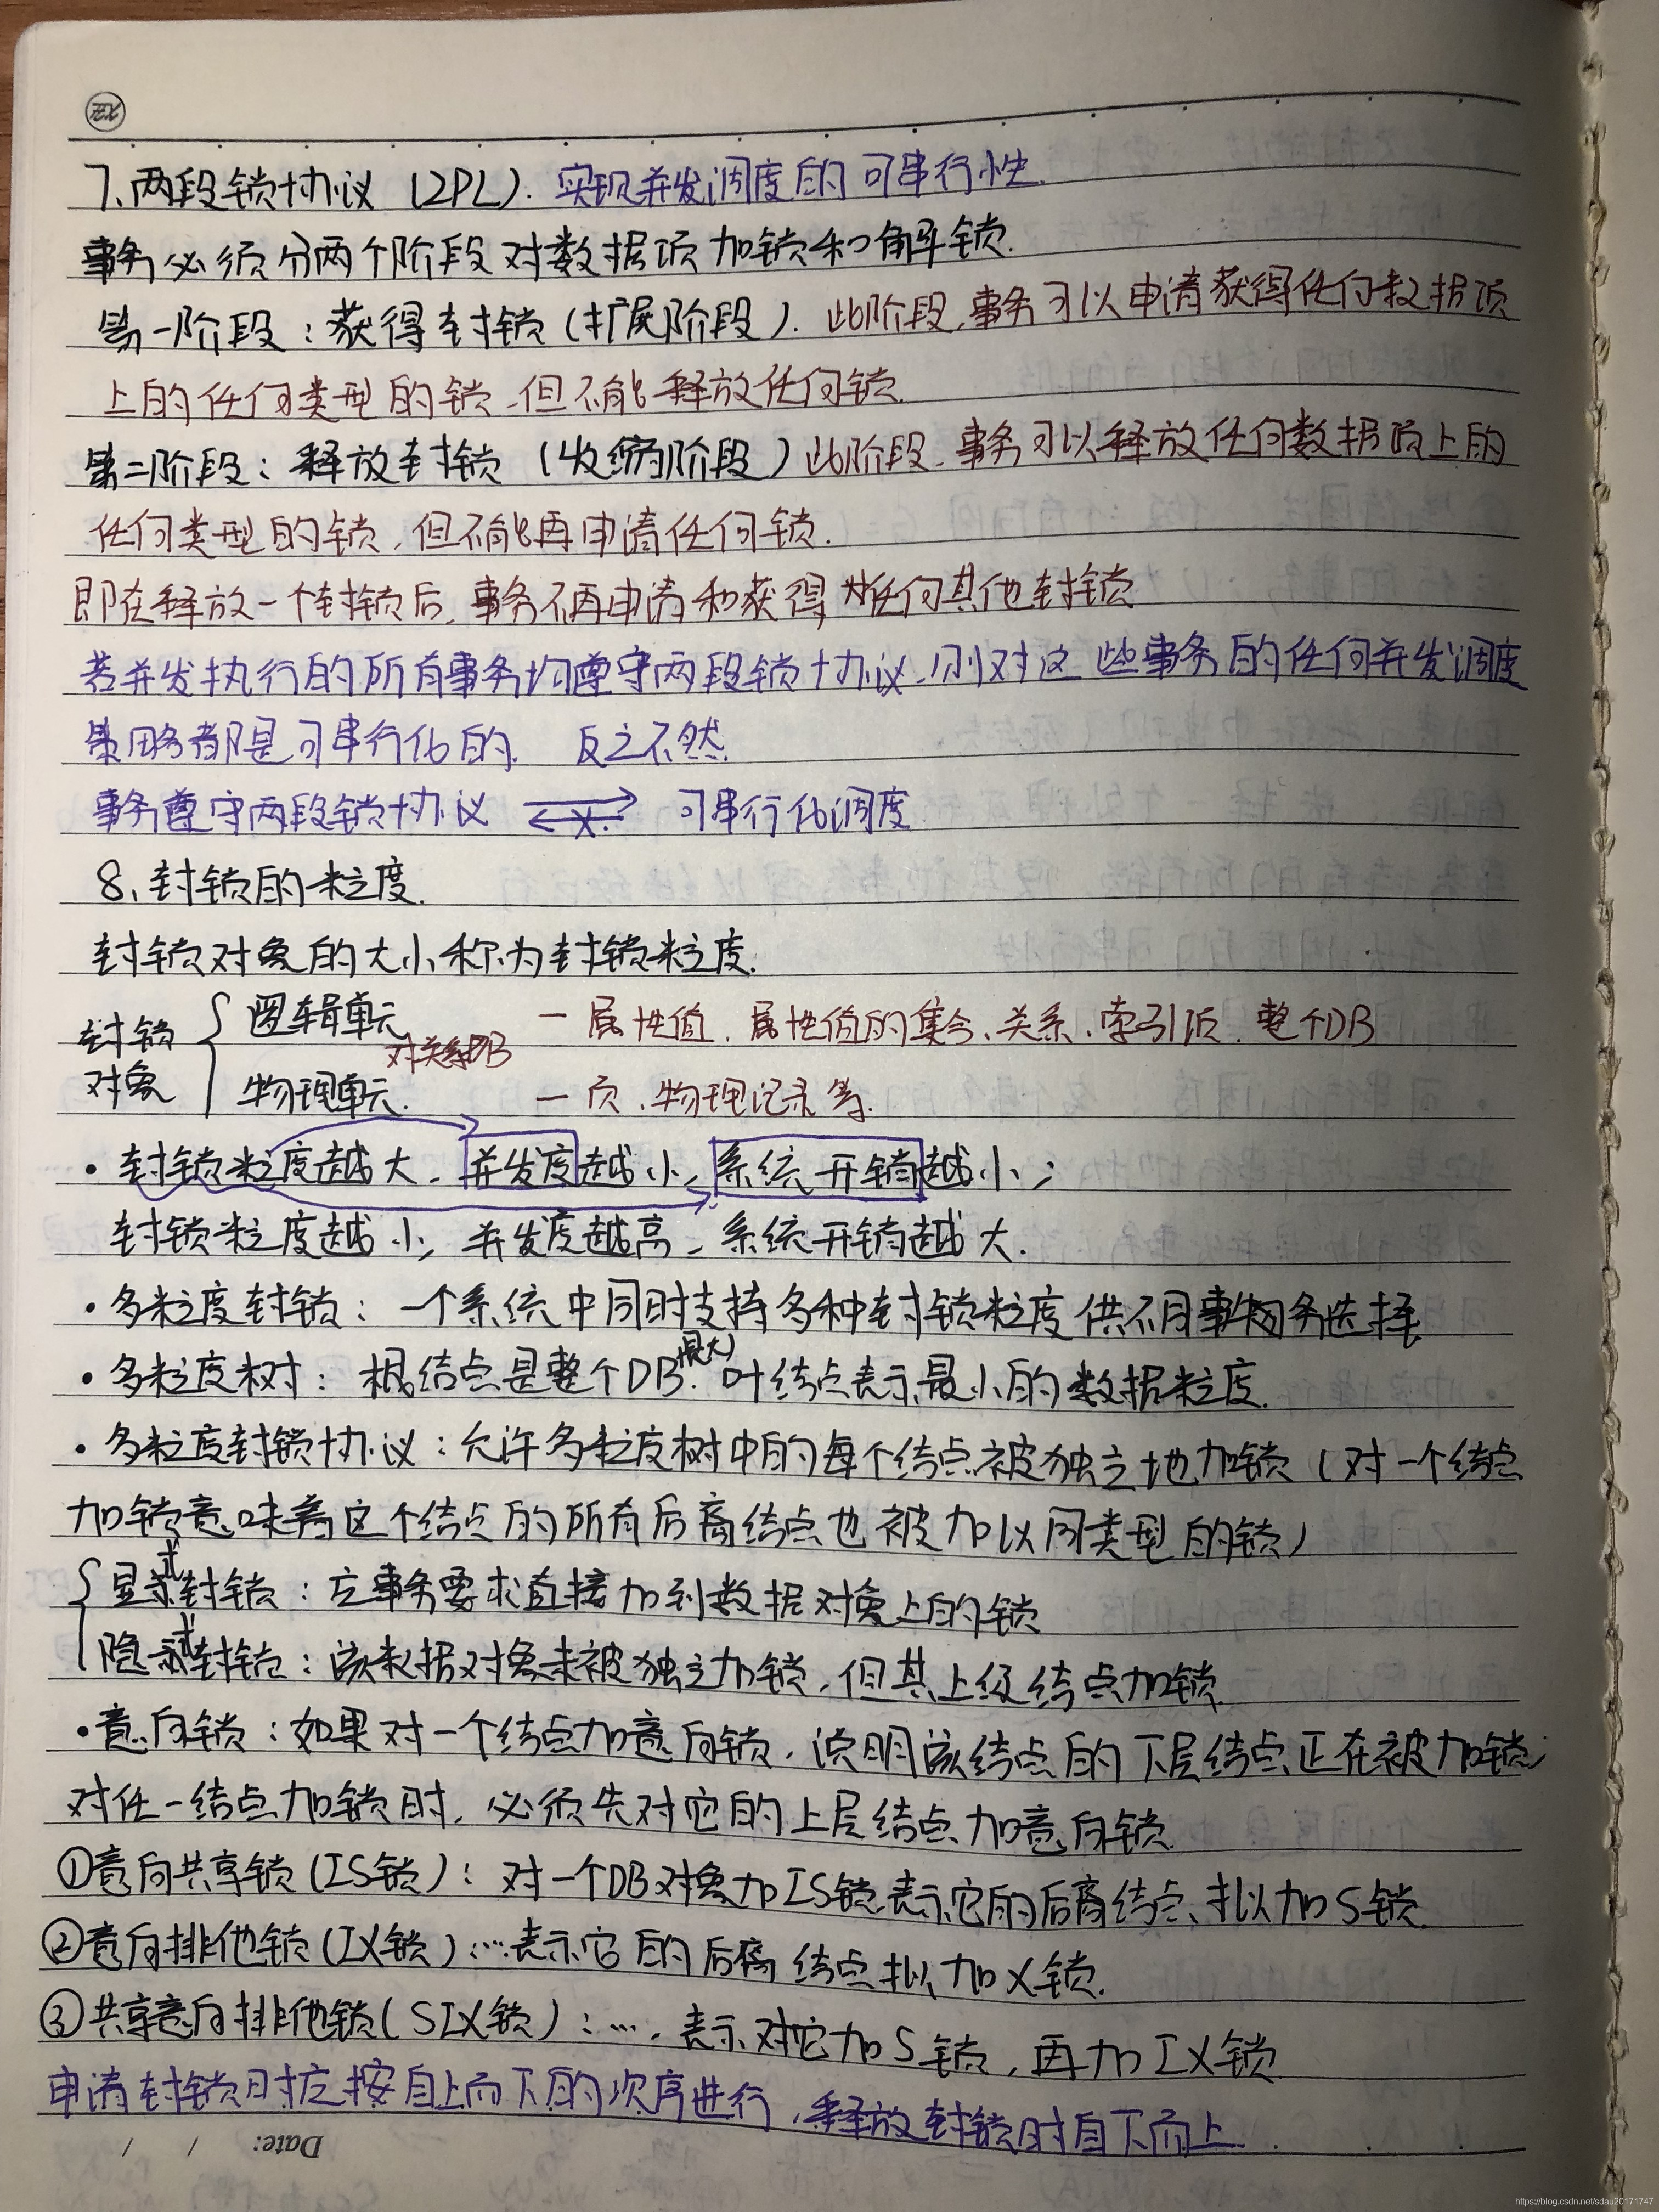 7、两段锁协议（2PL）. 实现并发调度的可串行性.
事务必须分两个阶段对数据项加锁和解锁.
第一阶段：获得封锁（扩展阶段）. 此阶段,事务可以申请获得任何数据项
上的任何类型的锁,但不能释放任何锁.
第二阶段：释放封锁（收缩阶段）此阶段,事务可以释放任何数据项上的
任何类型的锁,但不能再申请任何锁.
即在释放一个封锁后,事务不再申请和获得对任何其他封锁
若并发执行的所有事务均遵守两段锁协议,则对这些事务的任何并发调度
策略都是可串行化的. 反之不然.
事务遵守两段锁协议 可串行化调度
8、封锁的粒度.
封锁对象的大小称为封锁粒度.
封锁对象
逻辑单元 一属性值、属性值的集合、关系、索引项、整个DB
对关系DB
物理单元. 一页、物理记录等.
• 封锁粒度越大,并发度越小,系统开销越小；
封锁粒度越小,并发度越高,系统开销越大.
• 多粒度封锁：一个系统中同时支持多种封锁粒度供不同事物务选择
• 多粒度树：根结点是整个DB(最大).叶结点表示最小的数据粒度.
• 多粒度封锁协议：允许多粒度树中的每个结点被独立地加锁（对一个结点
加锁意味着这个结点的所有后裔结点也被加以同类型的锁）
显式封锁：应事务要求直接加到数据对象上的锁
隐式封锁：该数据对象未被独立加锁,但其上级结点加锁.
• 意向锁：如果对一个结点加意向锁,说明该结点的下层结点正在被加锁；
对任一结点加锁时,必须先对它的上层结点加意向锁.
①意向共享锁(IS锁)：对一个DB对象加IS锁,表示它的后裔结点拟加S锁.
②意向排他锁(IX锁)：…表示它的后裔结点拟加X锁.
③共享意向排他锁(SIX锁)：…,表示对它加S锁,再加IX锁.
申请封锁时应按自上而下的次序进行,释放封锁时自下而上.
Date: / /
https://blog.csdn.net/sdau20171747